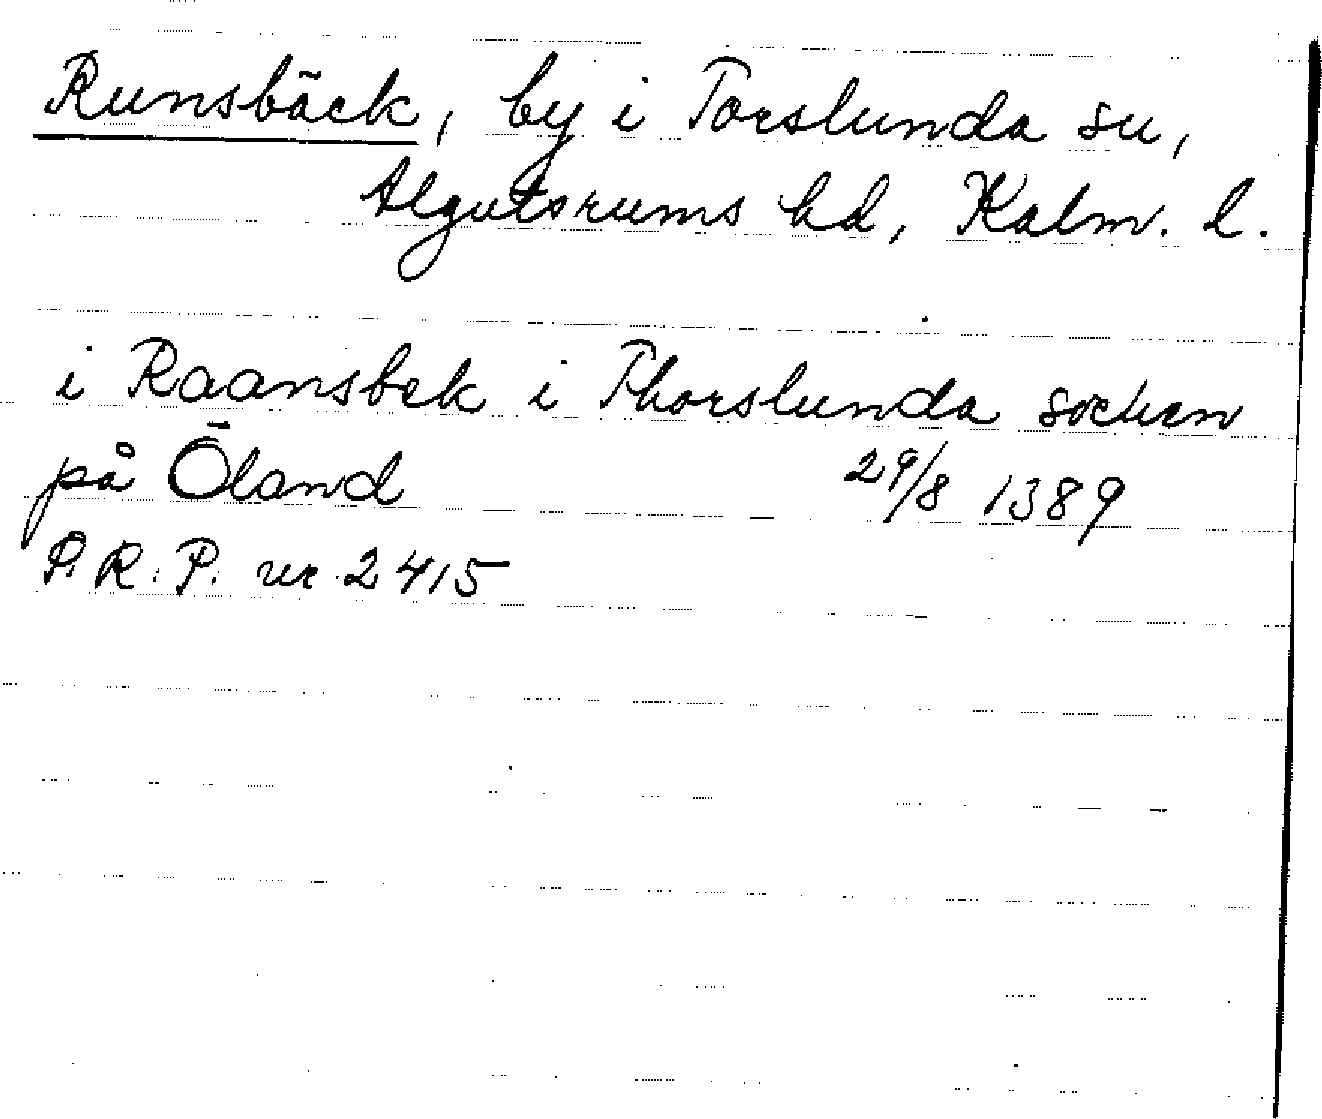 Runsbäck, by i Torslunda sn,
Algutsrums hd, Kalm. l.
i Raansbek i Thorslunda socken
på Öland 29/8 1389
P.R.P. nr 2415